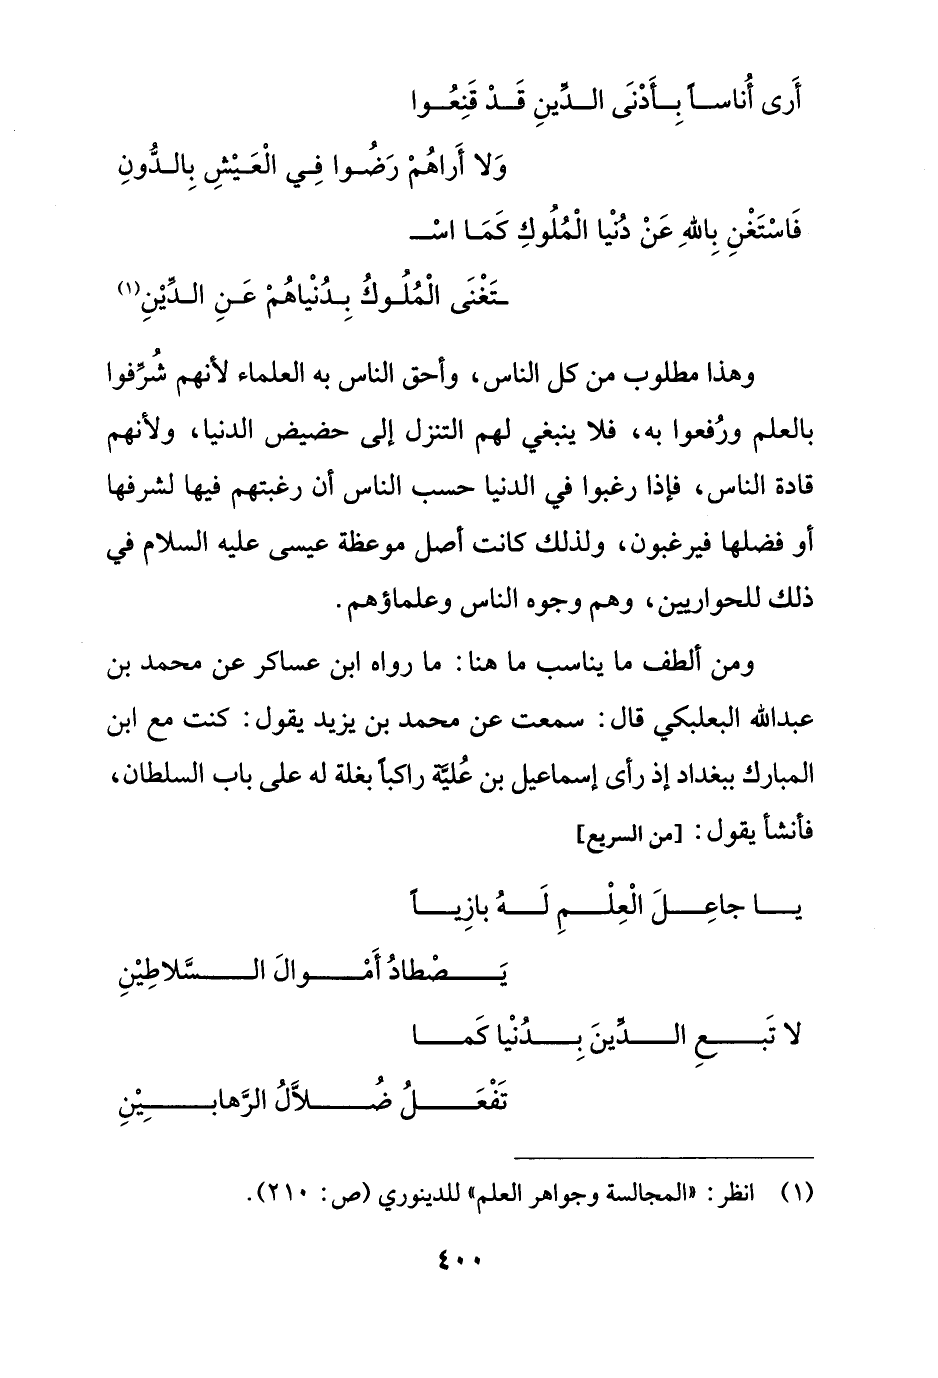 أَرى أُناساً بِأَدْنَى الدِّينِ قَدْ قَنِعُوا
وَلا أَراهُمْ رَضُوا فِي الْعَيْشِ بِالدُّونِ
فَاسْتَغْنِ بِاللهِ عَنْ دُنْيا الْمُلُوكِ كَمَا اسْـ
ـتَغْنَى الْمُلُوكُ بِدُنْياهُمْ عَنِ الدِّيْنِ(١)
وهذا مطلوب من كل الناس، وأحق الناس به العلماء لأنهم شُرِّفوا
بالعلم ورُفعوا به، فلا ينبغي لهم التنزل إلى حضيض الدنيا، ولأنهم
قادة الناس، فإذا رغبوا في الدنيا حسب الناس أن رغبتهم فيها لشرفها
أو فضلها فيرغبون، ولذلك كانت أصل موعظة عيسى عليه السلام في
ذلك للحواريين، وهم وجوه الناس وعلماؤهم.
ومن ألطف ما يناسب ما هنا: ما رواه ابن عساكر عن محمد بن
عبدالله البعلبكي قال: سمعت عن محمد بن يزيد يقول: كنت مع ابن
المبارك ببغداد إذ رأى إسماعيل بن عُليَّة راكباً بغلة له على باب السلطان،
فأنشأ يقول: [من السريع]
يا جاعِلَ الْعِلْمِ لَهُ بازِياً
يَصْطادُ أَمْوالَ السَّلاطِيْنِ
لا تَبِعِ الدِّينَ بِدُنْيا كَما
تَفْعَلُ ضُلاَّلُ الرَّهابِيْنِ
(١) انظر: «المجالسة وجواهر العلم» للدينوري (ص: ٢١٠).
٤٠٠